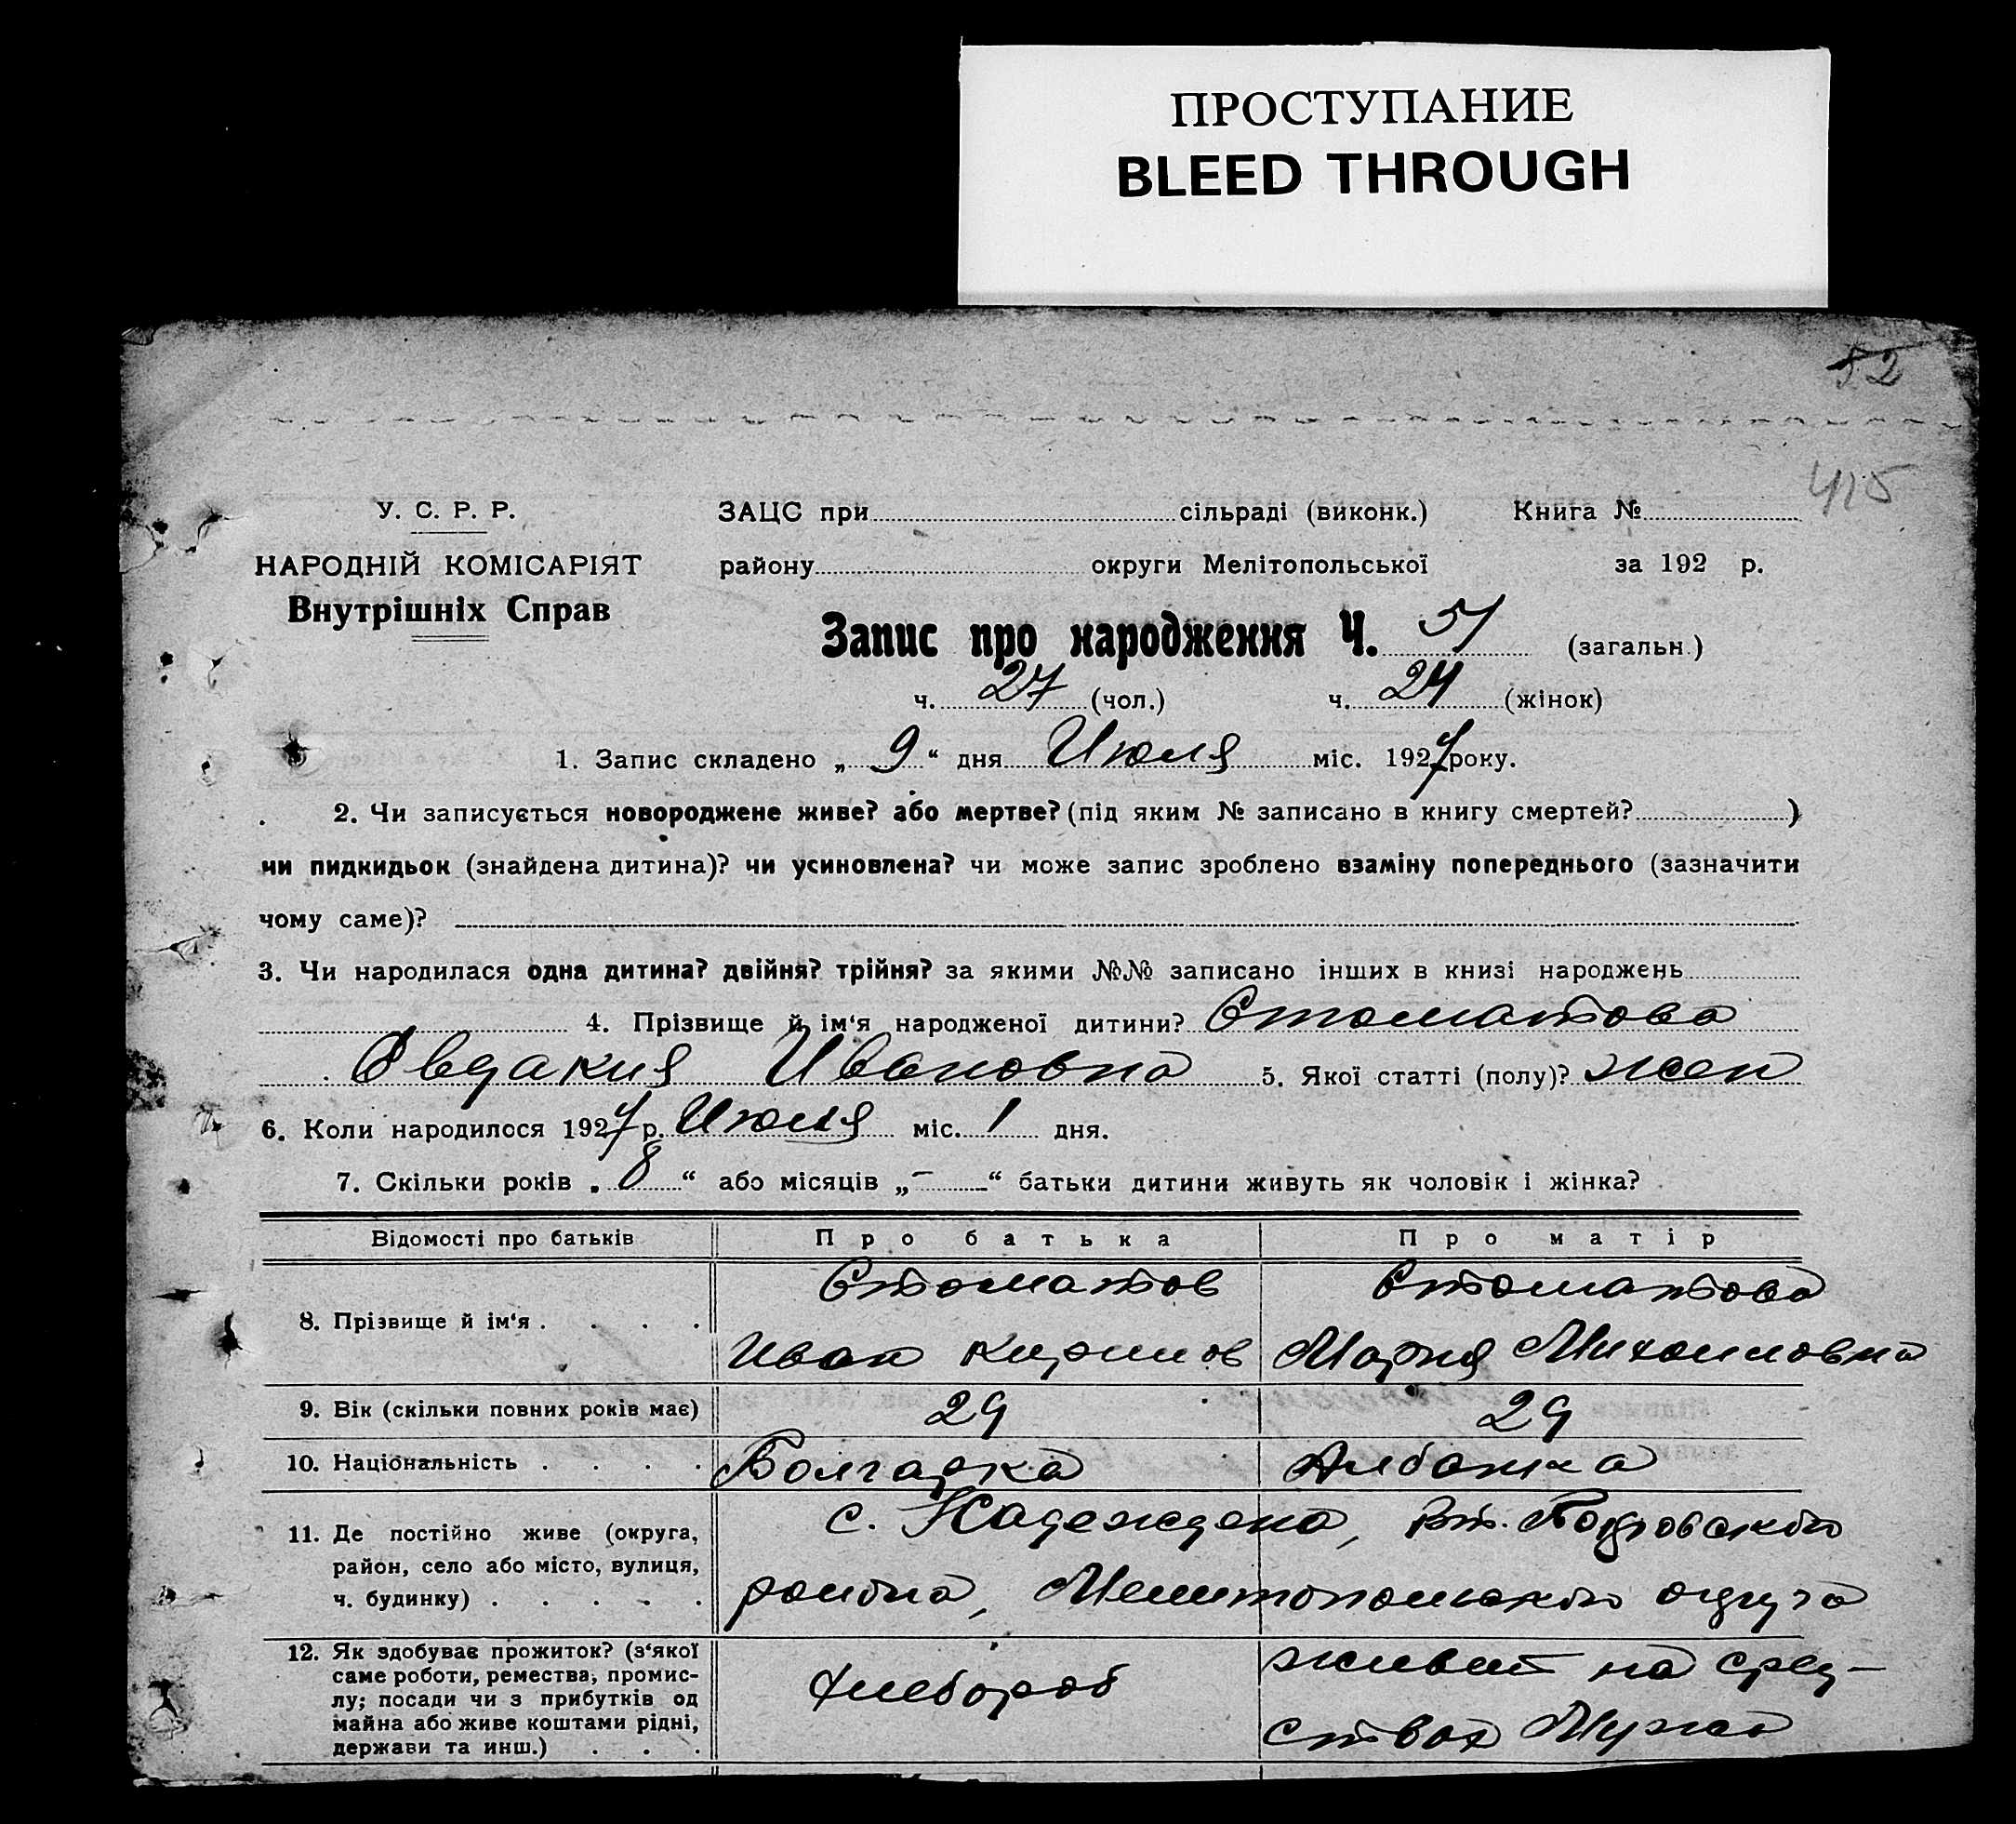 ПРОСТУПАНИЕ
BLEED THROUGH
52
415
У. С. Р. Р. ЗАЦС при сільраді (виконк.) Книга №
НАРОДНІЙ КОМІСАРІЯТ району округи Мелітопольської за 192 р.
Внутрішніх Справ
Запис про народження Ч. 51 (загальн.)
ч. 27 (чол.) ч. 24 (жінок)
1. Запис складено „ 9 “ дня Июля міс. 1927 року.
2. Чи записується новороджене живе? або мертве? (під яким № записано в книгу смертей? )
чи пидкидьок (знайдена дитина)? чи усиновлена? чи може запис зроблено взаміну попереднього (зазначити
чому саме)?
3. Чи народилася одна дитина? двійня? трійня? за якими №№ записано інших в книзі народжень
4. Прізвище й ім‘я народженої дитини? Стоматова
Овдакия Ивановна 5. Якої статті (полу)? жен
6. Коли народилося 1927 р. Июля міс. 1 дня.
7. Скільки років „ 8 “ або місяців „ – “ батьки дитини живуть як чоловік і жінка?
Відомості про батьків Про батька Про матір
Стоматов Стоматова
8. Прізвище й ім‘я . . . .
Иван Кирилов Мария Михаиловна
9. Вік (скільки повних років має) 29 29
10. Національність . . . . Болгарка Албанка
11. Де постійно живе (округа, район, село або місто, вулиця, ч. будинку) . . . . .
с. Надеждено,
района, Мелитопольской округа
12. Як здобуває прожиток? (з‘якої саме роботи, ремества, промис-
лу; посади чи з прибутків од
майна або живе коштами рідні,
держави та инш.) . . .
Хлебороб
живет на сред-
ствах Мужа